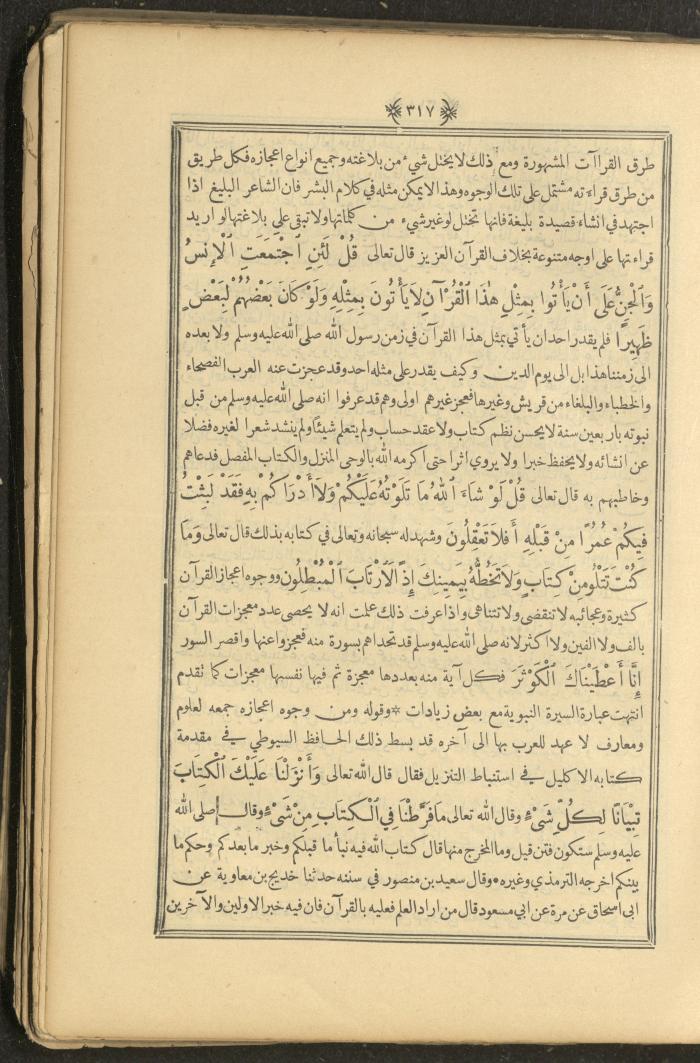 ٣١٧
طرق القراآت المشهورة ومع ذلك لا يختل شيء من بلاغته وجميع انواع اعجازه فكل طريق
من طرق قراءته مشتمل على تلك الوجوه وهذا لا يمكن مثله في كلام البشر فان الشاعر البليغ اذا
اجتهد في انشاء قصيدة بليغة فانها تختل لو غير شيء من كلماتها ولا تبقى على بلاغتها لو اريد
قراءتها على اوجه متنوعة بخلاف القرآن العزيز قال تعالى قُلْ لَئِنِ اجْتَمَعَتِ الْإِنْسُ
وَالْجِنُّ عَلَى أَنْ يَأْتُوا بِمِثْلِ هٰذَا الْقُرْآنِ لَا يَأْتُونَ بِمِثْلِهِ وَلَوْ كَانَ بَعْضُهُمْ لِبَعْضٍ
ظَهِيرًا فلم يقدر احد ان يأتي بمثل هذا القرآن في زمن رسول الله صلى الله عليه وسلم ولا بعده
الى زمننا هذا بل الى يوم الدين وكيف يقدر على مثله احد وقد عجزت عنه العرب الفصحاء
والخطباء والبلغاء من قريش وغيرها فعجز غيرهم اولى وهم قد عرفوا انه صلى الله عليه وسلم من قبل
نبوته باربعين سنة لا يحسن نظم كتاب ولا عقد حساب ولم يتعلم شيئًا ولم ينشد شعرا لغيره فضلا
عن انشائه ولا يحفظ خبرا ولا يروي اثرا حتى اكرمه الله بالوحي المنزل والكتاب المفصل فدعاهم
وخاطبهم به قال تعالى قُلْ لَوْ شَاءَ اللهُ مَا تَلَوْتُهُ عَلَيْكُمْ وَلَا أَدْرَاكُمْ بِهِ فَقَدْ لَبِثْتُ
فِيكُمْ عُمُرًا مِنْ قَبْلِهِ أَفَلَا تَعْقِلُونَ وشهد له سبحانه وتعالى في كتابه بذلك قال تعالى وَمَا
كُنْتَ تَتْلُو مِنْ كِتَابٍ وَلَا تَخُطُّهُ بِيَمِينِكَ إِذًا لَارْتَابَ الْمُبْطِلُونَ ووجوه اعجاز القرآن
كثيرة وعجائبه لا تنقضي ولا تتناهى واذا عرفت ذلك علمت انه لا يحصى عدد معجزات القرآن
بالف ولا الفين ولا اكثر لانه صلى الله عليه وسلم قد تحداهم بسورة منه فعجزوا عنها واقصر السور
إِنَّا أَعْطَيْنَاكَ الْكَوْثَرَ فكل آية منه بعددها معجزة ثم فيها نفسها معجزات كما تقدم
انتهت عبارة السيرة النبوية مع بعض زيادات * وقوله ومن وجوه اعجازه جمعه لعلوم
ومعارف لا عهد للعرب بها الى آخره قد بسط ذلك الحافظ السيوطي في مقدمة
كتابه الاكليل في استنباط التنزيل فقال قال الله تعالى وَأَنْزَلْنَا عَلَيْكَ الْكِتَابَ
تِبْيَانًا لِكُلِّ شَيْءٍ وقال الله تعالى مَا فَرَّطْنَا فِي الْكِتَابِ مِنْ شَيْءٍ وقال صلى الله
عليه وسلم ستكون فتن قيل وما المخرج منها قال كتاب الله فيه نبأ ما قبلكم وخبر ما بعدكم وحكم ما
بينكم اخرجه الترمذي وغيره • وقال سعيد بن منصور في سننه حدثنا خديج بن معاوية عن
ابي اسحاق عن مرة عن ابي مسعود قال من اراد العلم فعليه بالقرآن فان فيه خبر الاولين والآخرين